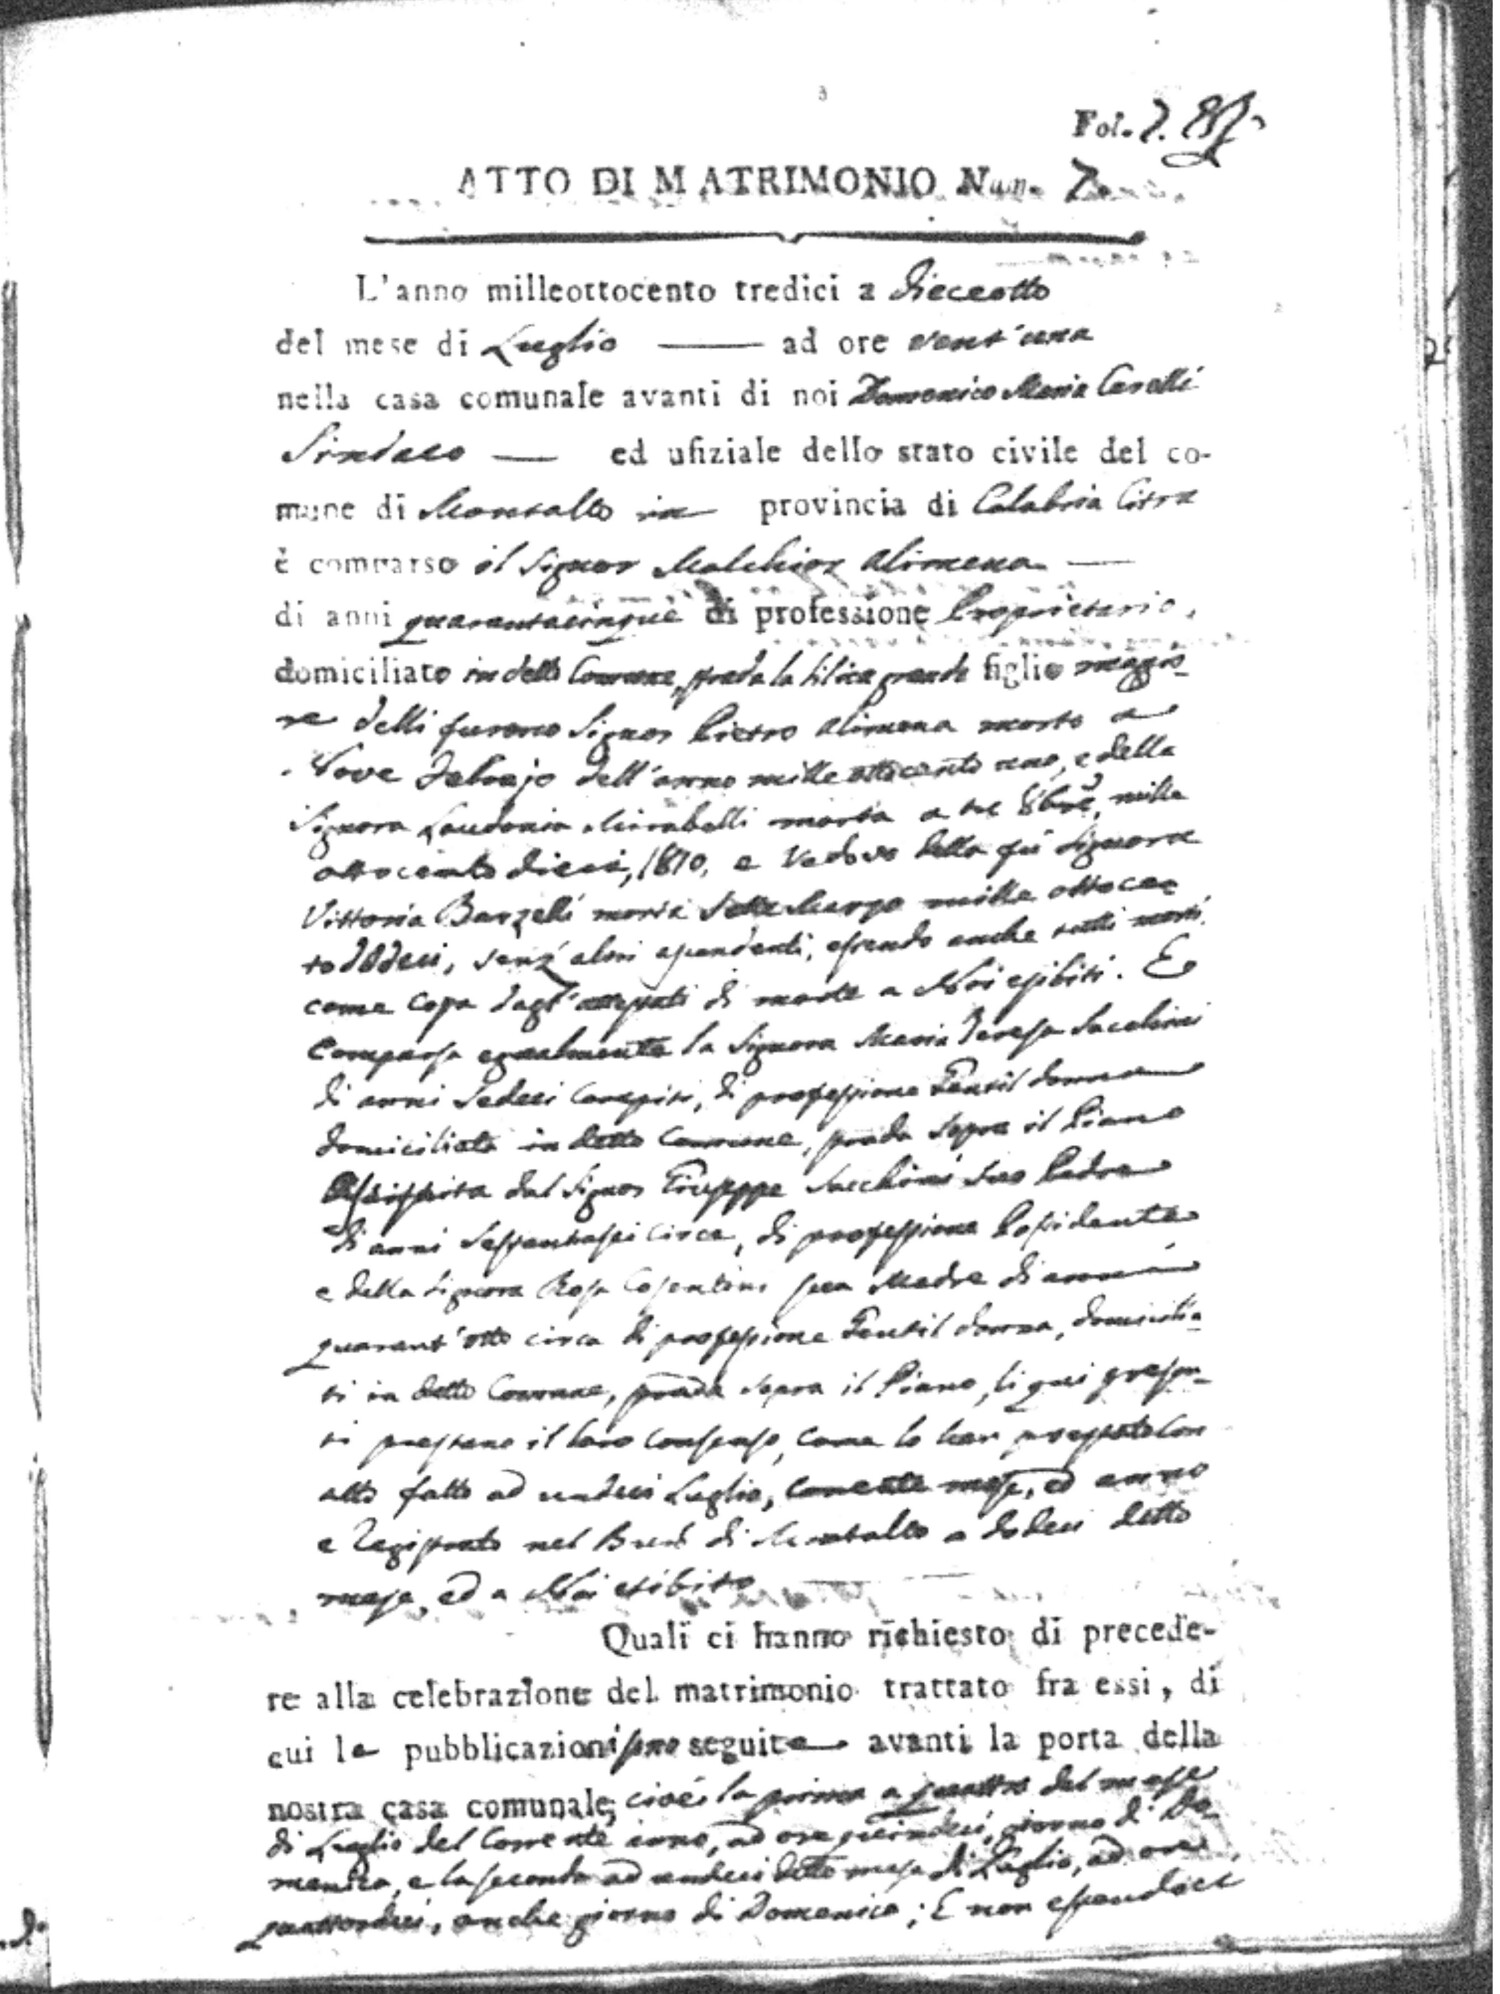 Fol. 7.
ATTO DI MATRIMONIO Num. 7.
L'anno milleottocento tredici a dieceotto
del mese di Luglio — ad ore vent'una
nella casa comunale avanti di noi Domenico Maria Caselli
Sindaco — ed ufiziale dello stato civile del co-
mune di Montalto in provincia di Calabria Citra
è comparso il Signor Melchior Alimena —
di anni quarantacinque di professione Proprietario,
domiciliato in detto Comune, strada la Silica grande figlio maggio-
re delli furono Signor Pietro Alimena morto a
Nove Febrajo dell'anno mille ottocento uno, e della
Signora Laudonia Mirabelli morta a tre 8bre, mille
ottocento dieci, 1810, e Vedovo della fù Signora
Vittoria Barzelli morta Sette Marzo mille ottocen
to dodeci, senz'alcri, essendo anche tutti morti,
come costa dagl'attestati di morte a Noi esibiti. E
Comparsa egualmente la Signora Maria Teresa Sacchini
di anni Sedeci compiti, di professione Gentil donna
domiciliata in detto Comune, strada sopra il Piano
Assistita dal Signor Giuseppe Sacchini suo Padre
di anni Sessantasei circa, di professione Possidente
e della Signora Rosa Cosentini sua Madre di anni
quarant'otto circa di professione Gentil donna, domicilia-
ti in detto Comune, strada sopra il Piano, li qui presen-
ti prestano il loro consenso, come lo han prestato con
atto fatto ad undeci Luglio, corrente mese, ed anno
e Registrato nel Burò di Montalto a dodeci detto
mese, ed a Noi esibito
Quali ci hanno richiesto di precede-
re alla celebrazione del matrimonio trattato fra essi, di
cui le pubblicazioni sono seguite avanti la porta della
nostra casa comunale, cioè la prima a quattro del mese
di Luglio del Corrente anno, ad ore quindeci, giorno di Do-
menica, e la seconda ad undeci detto mese di Luglio, ad ore
quattordeci, anche giorno di Domenica; E non essendoci